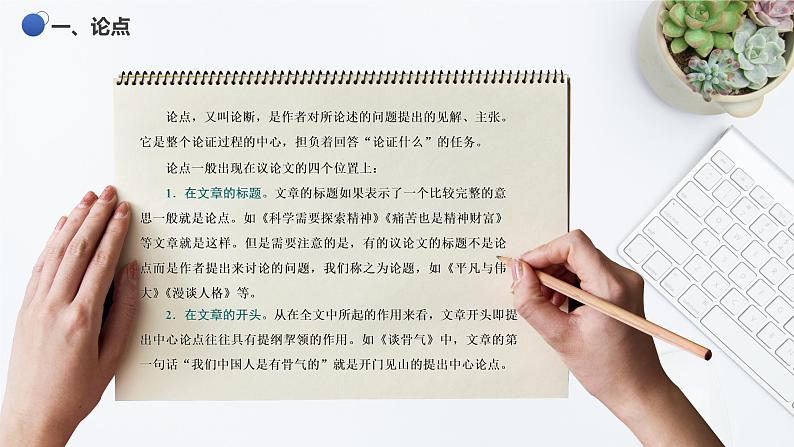 一、论点
论点，又叫论断，是作者对所论述的问题提出的见解、主张。
它是整个论证过程的中心，担负着回答“论证什么”的任务。
论点一般出现在议论文的四个位置上：
1．在文章的标题。文章的标题如果表示了一个比较完整的意
思一般就是论点。如《科学需要探索精神》《痛苦也是精神财富》
等文章就是这样。但是需要注意的是，有的议论文的标题不是论
点而是作者提出来讨论的问题，我们称之为论题，如《平凡与伟
大》《漫谈人格》等。
2．在文章的开头。从在全文中所起的作用来看，文章开头即提
出中心论点往往具有提纲挈领的作用。如《谈骨气》中，文章的第
一句话“我们中国人是有骨气的”就是开门见山的提出中心论点。